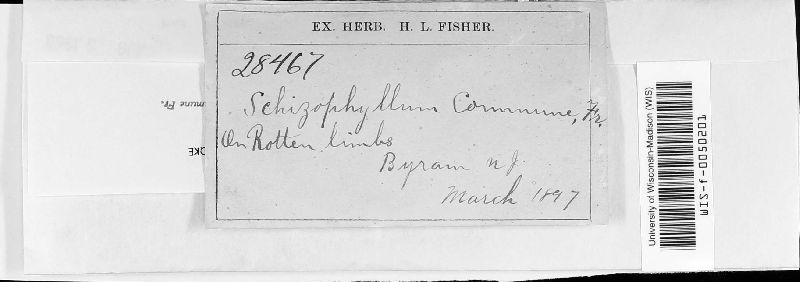 EX. HERB. H. L. FISHER.
28467
Schizophyllum Commune, Fr.
On Rotten limbs
Byram N J.
March 1897
mune Fr.
University of Wisconsin-Madison (WIS)
WIS-f-0050201